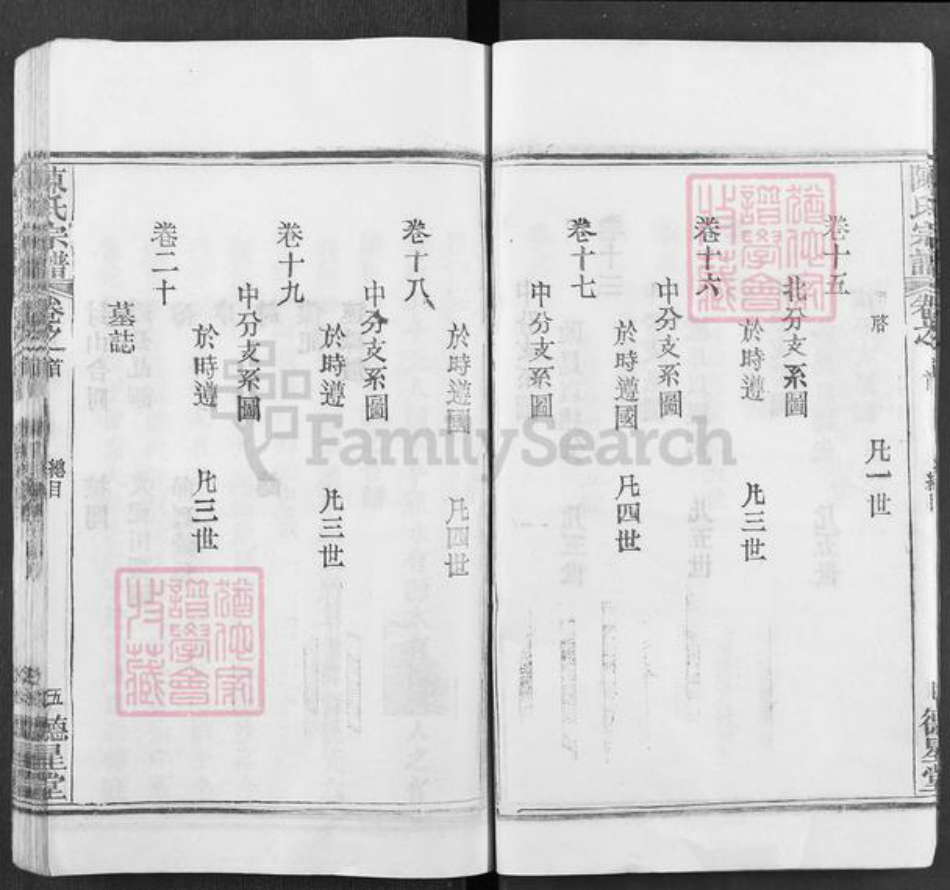 陳氏宗譜
卷之首
總目
德星堂
啓
凡一世
卷十五
北分支系圖
於時遵 凡三世
卷十六
中分支系圖
於時遵國 凡四世
卷十七
中分支系圖
於時遵國 凡四世
卷十八
中分支系圖
於時遵 凡三世
卷十九
中分支系圖
於時遵 凡三世
卷二十
墓誌
陳氏宗譜
卷之首
總目
五
德星堂
猶他家
譜學會
收藏
猶他家
譜學會
收藏
FamilySearch